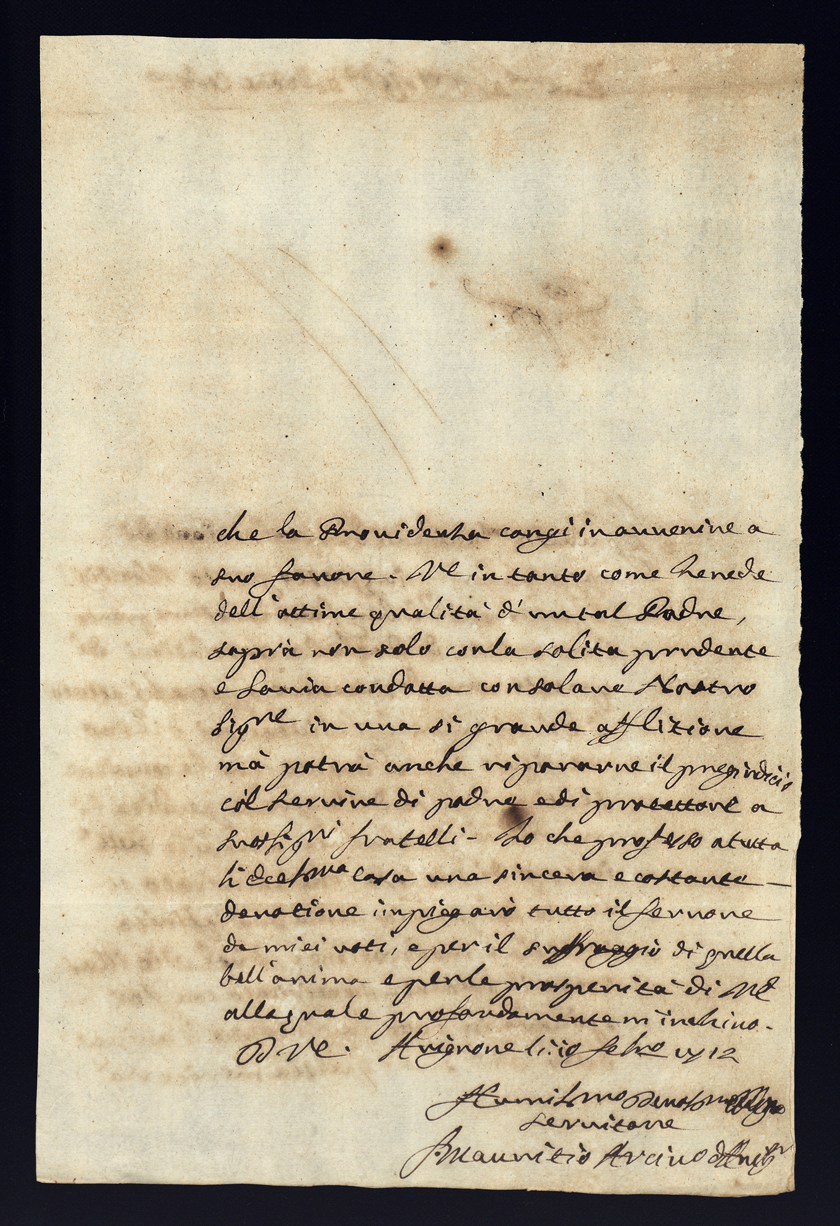 che la Providenza cangi in avvenire a
suo favore. VE in tanto come herede
dell'ottime qualità d'un tal Padre,
saprà non solo con la solita prudente
e savia condotta consolare Nostro
Sigre in una si grande afflizione
mà potrà anche ripararne il pregiudicio
col servire di padre e di protettore a
suoi Sigri fratelli. Io che professo a tutta
l'Eccelma casa una sincera e costante
devotione impiegarò tutto il fervore
de miei voti, e per il suffraggio di quella
bell'anima e per le prosperità di VE
alla quale profondamente m'inchino.
D VE. Avignone li 10 febro 1712
Humilmo Devotmo
servitore
Mauritio Arcivo d'